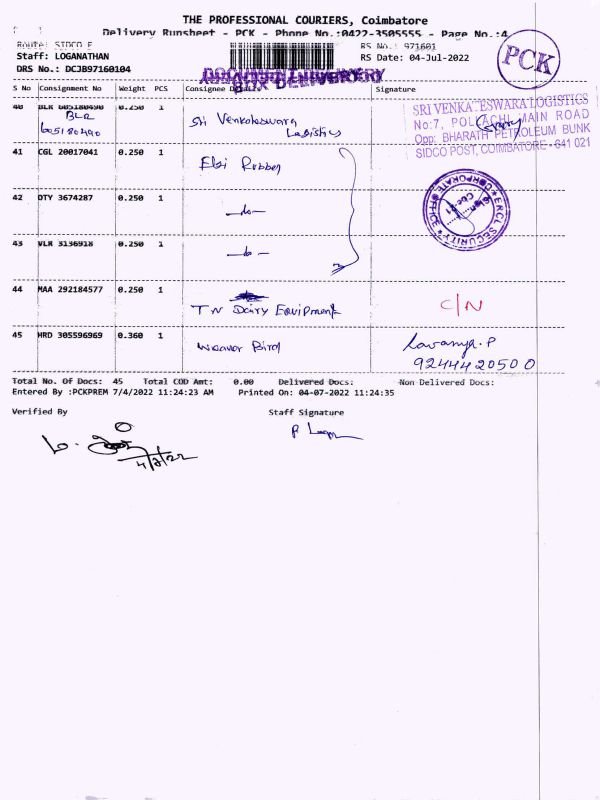 THE PROFESSIONAL COURIERS, Coimbatore
Delivery Runsheet - PCK - Phone No.:0422-3505555 - Page No.:4
Route: SIDCO E
RS No.: 971601
Staff: LOGANATHAN
RS Date: 04-Jul-2022
DRS No.: DCJB97160104
PCK
DELIVERY
S No Consignment No Weight PCS Consignee Details Signature
40 BLR 605180490 0.250 1 Sri Venkateswara
BLR
605180490 Logistics
SRI VENKATESWARA LOGISTICS
No:7, POLLACHI MAIN ROAD
Opp: BHARATH PETROLEUM BUNK
SIDCO POST, COIMBATORE - 641 021
41 CGL 20017041 0.250 1 Elgi Rubber
42 DTY 3674287 0.250 1 -do-
43 VLR 3136918 0.250 1 -do-
SECURITY
CORPORATE OFFICE
44 MAA 292184577 0.250 1 TN Dairy Equipment C/N
45 HRD 305596969 0.360 1 Weaver Bird Lavanya.P
9244420500
Total No. Of Docs: 45 Total COD Amt: 0.00 Delivered Docs: Non Delivered Docs:
Entered By :PCKPREM 7/4/2022 11:24:23 AM Printed On: 04-07-2022 11:24:35
Verified By Staff Signature
4/7/22